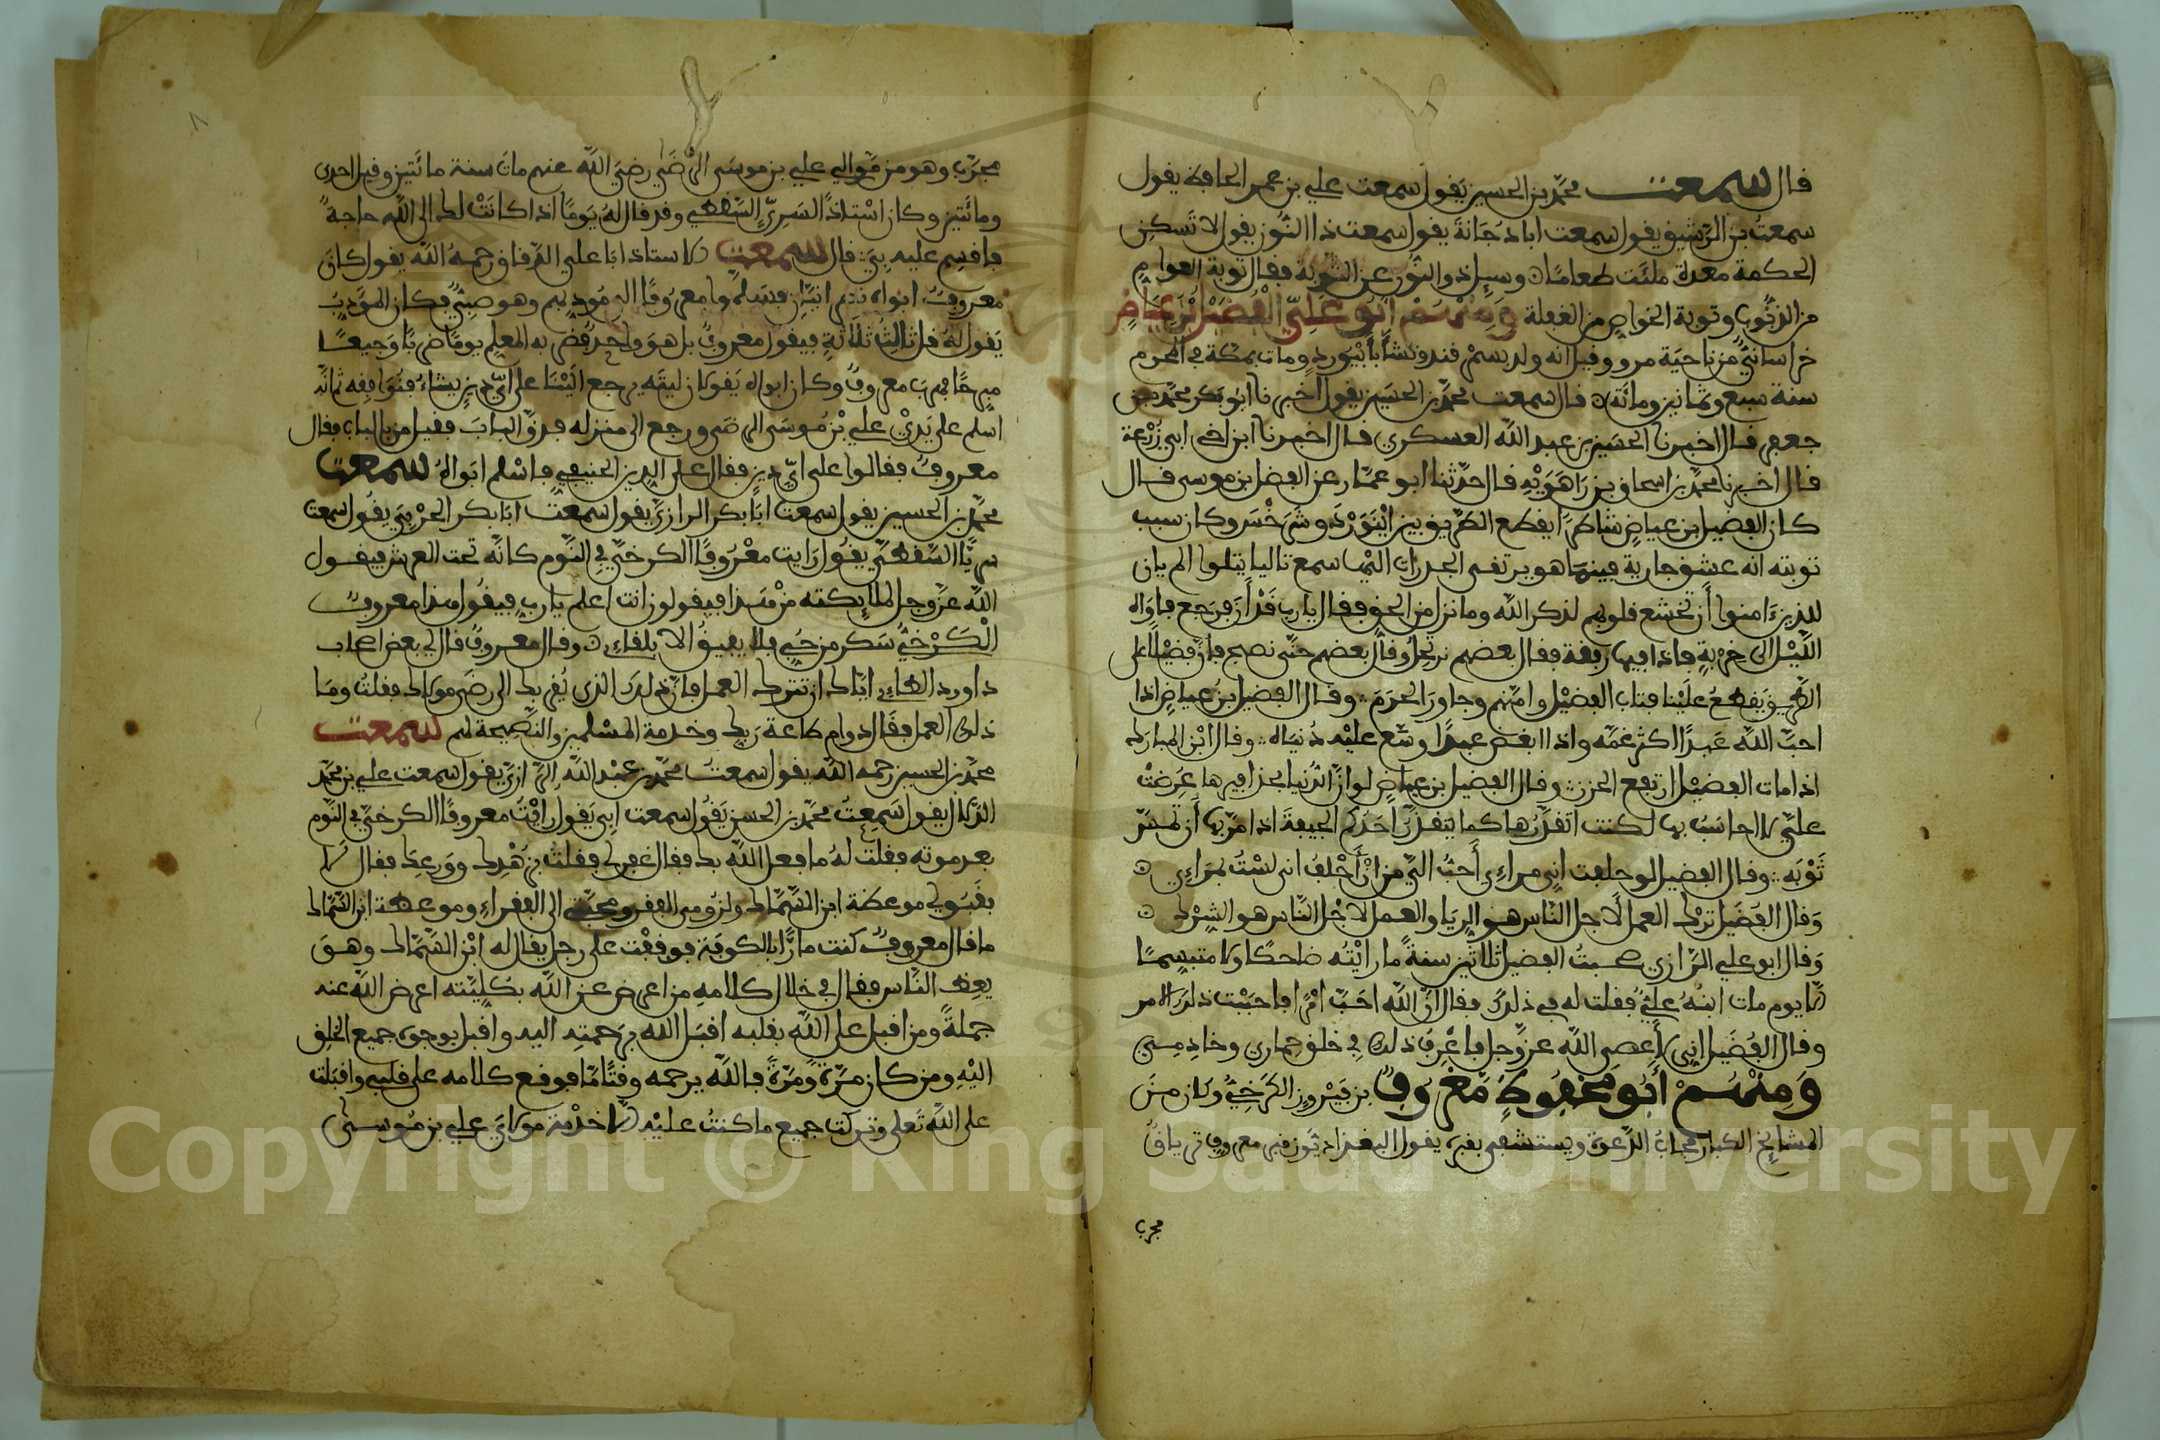 قال سمعت محمد بن الحسين يقول سمعت علي بن عمر الحافظ يقول
سمعت بن الرشيق يقول سمعت ابا دجانة يقول سمعت ذا النون يقول لا تسكن
الحكمة معدة ملئت طعاما وسيل ذو النون عن التوبة فقال توبة العوام
من الذنوب وتوبة الخواص من الغفلة ومنهم أبو علي الفضيل بن عياض
خراساني من ناحية مرو وقيل انه ولد بسمرقند ونشأ بأبيورد ومات بمكة في المحرم
سنة سبع وثمانين ومائة قال سمعت محمد بن الحسين يقول اخبرنا ابو بكر محمد بن
جعفر قال اخبرنا الحسين بن عبد الله العسكري قال اخبرنا ابن اخي ابي زرعة
قال اخبرنا محمد بن اسحاق بن راهويه قال حدثنا ابو عمار عن الفضل بن موسى قال
كان الفضيل بن عياض شاطرا يقطع الطريق بين ابيورد وسرخس وكان سبب
توبته انه عشق جارية فبينما هو يرتقي الجدران اليها سمع تاليا يتلوا الم يان
للذين ءامنوا أن تخشع قلوبهم لذكر الله وما نزل من الحق فقال يا رب قد أن فرجع فاواه
الليل الى خربة فاذا فيها رفقة فقال بعضهم نرتحل وقال بعضهم حتى نصبح فان فضيلا على
الطريق يقطع علينا فتاب الفضيل وامنهم وجاور الحرم وقال الفضيل بن عياض اذا
احب الله عبدا اكثر غمه واذا ابغض عبدا وسع عليه دنياه وقال ابن المبارك
اذا مات الفضيل ارتفع الحزن وقال الفضيل بن عياض لو ان الدنيا بحذافيرها عرضت
علي لا احاسب بها لكنت اتقذرها كما يتقذر احدكم الجيفة اذا مر بها أن تصيب
ثوبه وقال الفضيل لو حلفت اني مراءي أحب الي من ان أحلف اني لست بمراءي
وقال الفضيل ترك العمل لاجل الناس هو الريا والعمل لاجل الناس هو الشرك
وقال ابو علي الرازي صحبت الفضيل ثلاثين سنة ما رايته ضاحكا ولا متبسما
الا يوم مات ابنه علي فقلت له في ذلك فقال ان الله احب امرا فاحببت ذلك الامر
وقال الفضيل اني لأعصي الله عز وجل فاعرف ذلك في خلق حماري وخادمي
ومنهم أبو محفوظ معروف بن فيروز الكرخي وكان من
المشايخ الكبار مجاب الدعوة ويستشفى بقبره يقول البغداديون قبر معروف ترياق
مجرب
مجرب وهو من موالي علي بن موسى الرضى رضي الله عنهم مات سنة مائتين وقيل احدى
ومائتين وكان استاذ السري السقطي وقد قال له يوما اذا كانت لك الى الله حاجة
فاقسم عليه بي قال سمعت الاستاذ ابا علي الدقاق رحمه الله يقول كان
معروف ابواه نصرانيان فسلموا معروفا الى مودبهم وهو صبي فكان المؤدب
يقول له قل ثالث ثلاثة فيقول معروف بل هو واحد فضربه المعلم يوما ضربا وجيعا
مبرحا فهرب معروف وكان ابواه يقولان ليته يرجع الينا على اي دين يشاء فنوافقه ثم انه
اسلم على يدي علي بن موسى الرضى ورجع الى منزله فدق الباب فقيل من بالباب فقال
معروف فقالوا على اي دين فقال على الدين الحنيفي فاسلم ابواه سمعت
محمد بن الحسين يقول سمعت ابا بكر الرازي يقول سمعت ابا بكر الحربي يقول سمعت
سريا السقطي يقول رايت معروفا الكرخي في النوم كانه تحت العرش فيقول
الله عز وجل لملائكته من هذا فيقولوز انت اعلم يا رب فيقول هذا معروف
الكرخي سكر من حبي فلا يفيق الا بلقاءي وقال معروف قال لي بعض اصحاب
داود الطاءي اياك ان تترك العمل فان ذلك الذي يقربك الى رضى مولاك فقلت وما
ذلك العمل فقال دوام طاعة ربك وخدمة المسلمين والنصيحة لهم سمعت
محمد بن الحسين رحمه الله يقول سمعت محمد بن عبد الله الرازي يقول سمعت علي بن محمد
الدلال يقول سمعت محمد بن الحسن يقول سمعت ابي يقول رايت معروفا الكرخي في النوم
بعد موته فقلت له ما فعل الله بك فقال غفر لي فقلت بزهدك وورعك فقال لا
بقبولي موعظة ابن السماك ولزومي الفقر ومحبتي الى الفقراء وموعظة ابن السماك
ما قال معروف كنت مارا بالكوفة فوقفت على رجل يقال له ابن السماك وهو
يعظ الناس فقال في خلال كلامه من اعرض عن الله بكليته اعرض الله عنه
جملة ومن اقبل على الله بقلبه اقبل الله برحمته اليه واقبل بوجوه جميع الخلق
اليه ومن كان مرة ومرة فالله يرحمه وقتا ما فوقع كلامه على قلبي واقبلت
على الله تعلى وتركت جميع ما كنت عليه الا خدمة مولاي علي بن موسى
Copyright © King Saud University